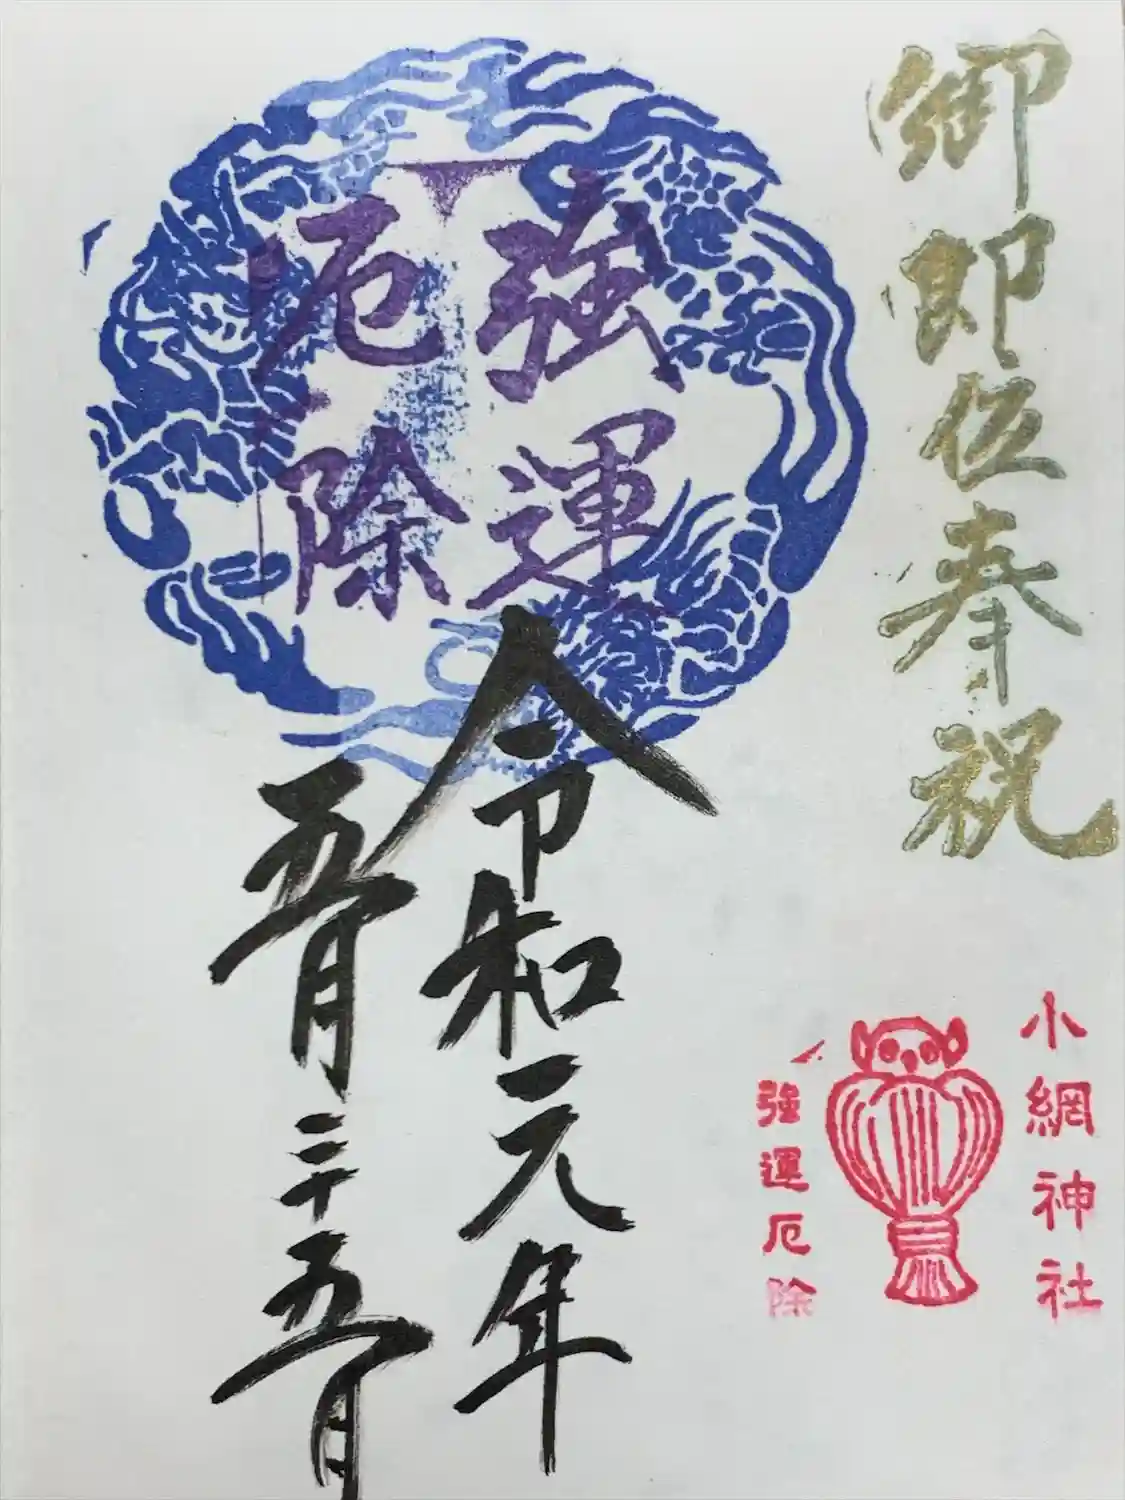 御即位奉祝
小網神社
強運厄除
強運
厄除
令和元年
五月二十五日